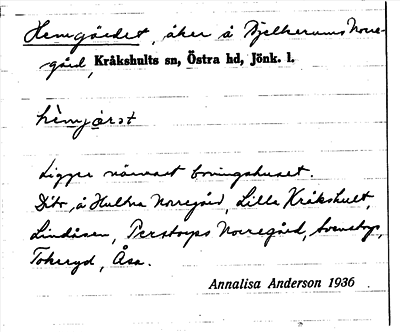 Hemgärdet, åker å Bjelkerums Norre-
gård, Kråkshults sn, Östra hd, Jönk. l.
hèmjærət
Ligger närmast boningshuset.
Dito å Hultna Norregård, Lilla Kråkshult,
Lindåsen, Perstorps Norregård, Svenstorp,
Tokeryd, Åsa.
Annalisa Anderson 1936